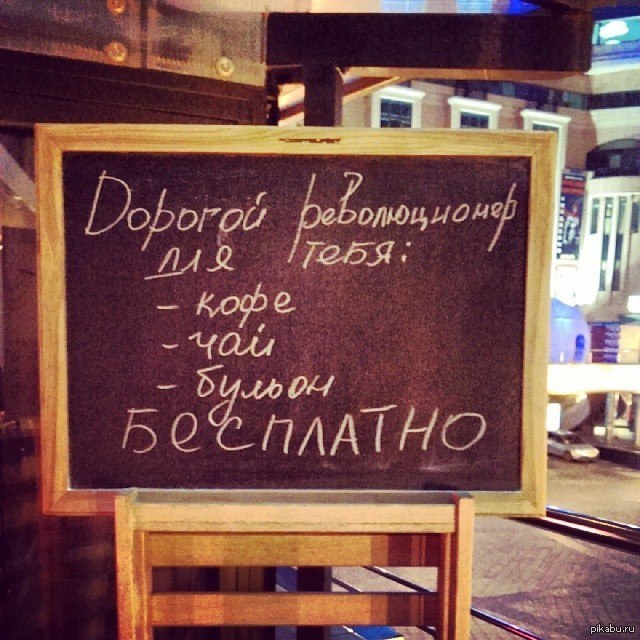 Дорогой революционер
для тебя:
- кофе
- чай
- бульон
БЕСПЛАТНО
pikabu.ru